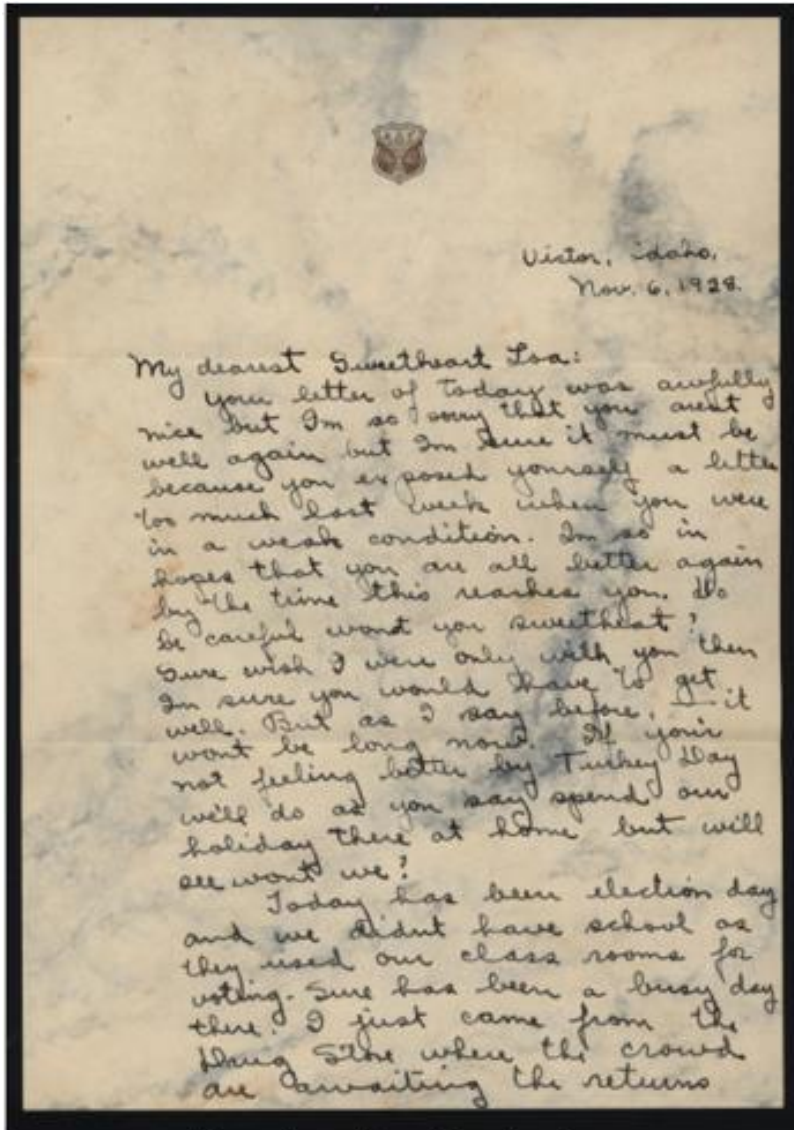 Victor, Idaho,
Nov. 6, 1928.
My dearest Sweetheart Loa:
your letter of today was awfully
nice but Im so sorry that you arent
well again but Im sure it must be
because you exposed yourself a little
too much last week when you were
in a weak condition. Im so in
hopes that you are all better again
by the time this reaches you. Do
be careful wont you sweetheart?
Sure wish I were only with you then
Im sure you would have to get
well. But as I say before, — it
wont be long now. If your
not feeling better by Turkey Day
will do as you say spend our
holiday there at home but will
see wont we?
Today has been election day
and we didnt have school as
they used our class rooms for
voting. Sure has been a busy day
there. I just came from the
Drug Store where the crowd
are awaiting the returns